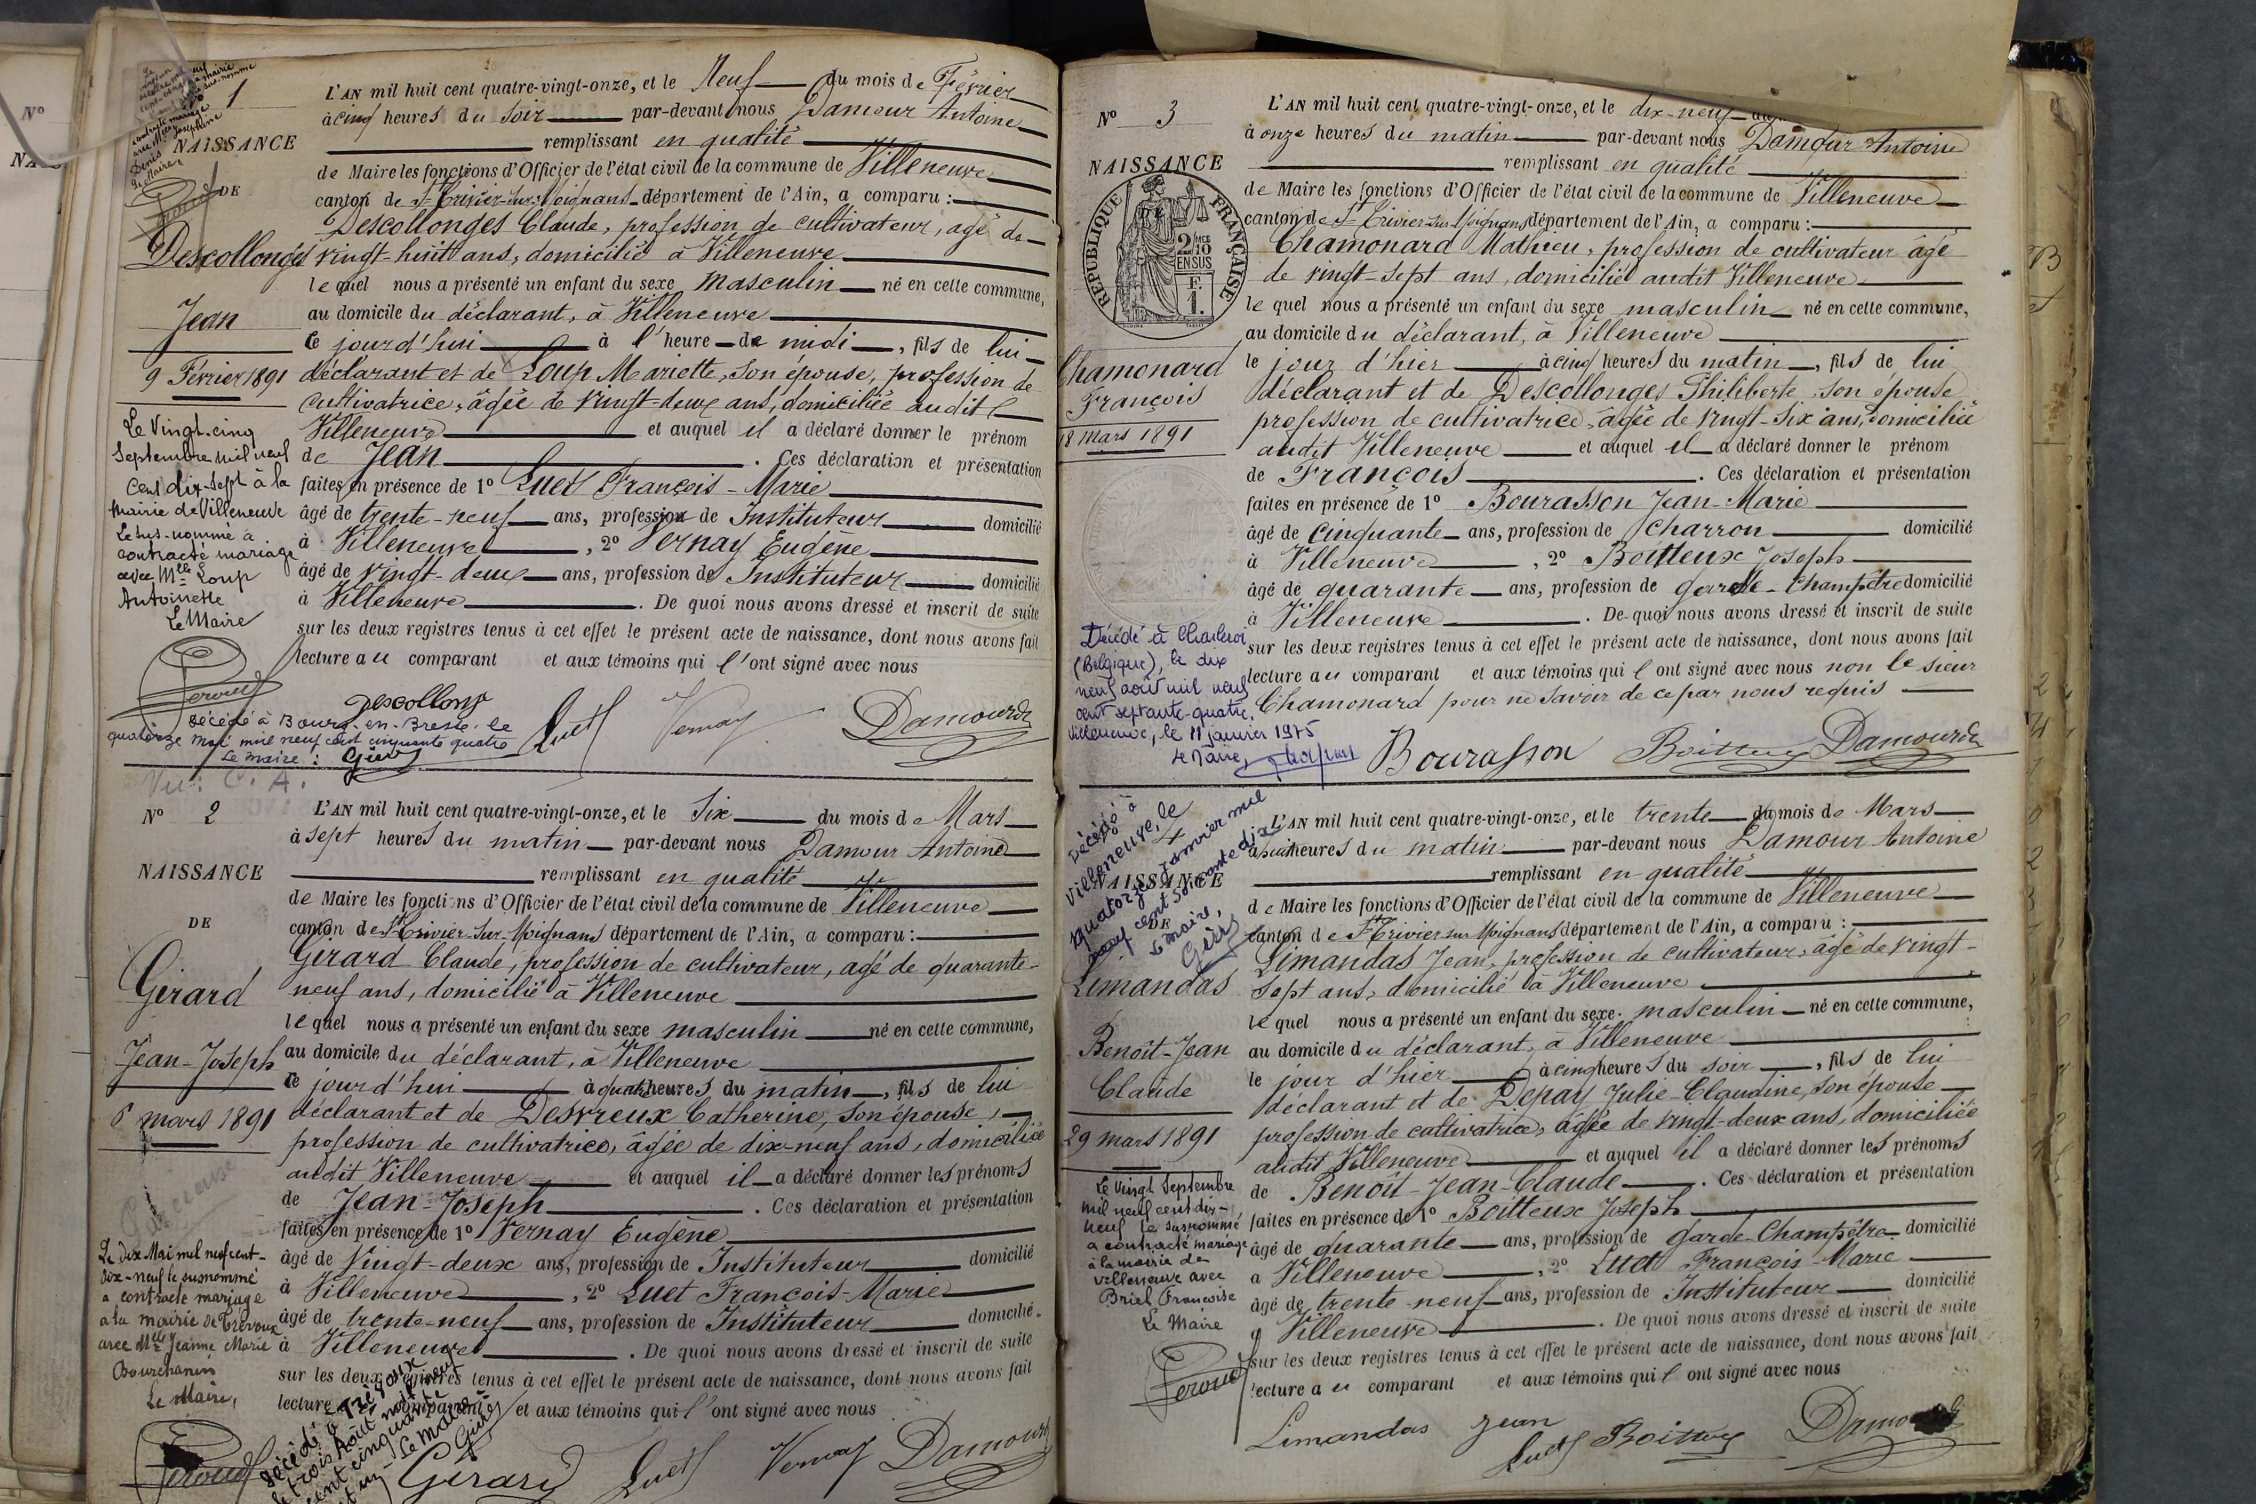 1
NAISSANCE
DE
Descollonges
Jean
9 Février 1891
Le Vingt-cinq
Septembre mil neuf
cent dix-sept à la
Mairie de Villeneuve
Le sus-nommé a
contracté mariage
avec Mlle Loup
Antoinette
Le Maire
L'AN mil huit cent quatre-vingt-onze, et le Neuf du mois de Février
à cinq heures du soir par-devant nous Damour Antoine
remplissant en qualité
de Maire les fonctions d'Officier de l'état civil de la commune de Villeneuve
canton de St Trivier-sur-Moignans département de l'Ain, a comparu :
Descollonges Claude, profession de cultivateur, âgé de
vingt-huit ans, domicilié à Villeneuve
lequel nous a présenté un enfant du sexe masculin né en cette commune,
au domicile du déclarant, à Villeneuve
ce jourd'hui à l'heure de midi, fils de lui
déclarant et de Loup Mariette, son épouse, profession de
cultivatrice, âgée de vingt-deux ans, domiciliée audit
Villeneuve et auquel il a déclaré donner le prénom
de Jean. Ces déclaration et présentation
faites en présence de 1º Luet François-Marie
âgé de trente-neuf ans, profession de Instituteur domicilié
à Villeneuve, 2º Vernay Eugène
âgé de vingt-deux ans, profession de Instituteur domicilié
à Villeneuve. De quoi nous avons dressé et inscrit de suite
sur les deux registres tenus à cet effet le présent acte de naissance, dont nous avons fait
lecture au comparant et aux témoins qui l'ont signé avec nous
Descollong
Luet Vernay Damour
décédé à Bourg-en-Bresse le
quatorze mai mil neuf cent cinquante quatre
Le Maire :
Vu : C. A.
Nº 2
NAISSANCE
DE
Girard
Jean-Joseph
6 mars 1891
Le dix Mai mil neuf cent-
dix-neuf le susnommé
a contracté mariage
à la mairie de Trévoux
avec Mlle Jeanne Marie
Le Maire,
L'AN mil huit cent quatre-vingt-onze, et le Six du mois de Mars
à sept heures du matin par-devant nous Damour Antoine
remplissant en qualité
de Maire les fonctions d'Officier de l'état civil de la commune de Villeneuve
canton de St Trivier-sur-Moignans département de l'Ain, a comparu :
Girard Claude, profession de cultivateur, âgé de quarante-
neuf ans, domicilié à Villeneuve
lequel nous a présenté un enfant du sexe masculin né en cette commune,
au domicile du déclarant, à Villeneuve
ce jourd'hui à quatre heures du matin, fils de lui
déclarant et de Desvreux Catherine, son épouse,
profession de cultivatrice, âgée de dix-neuf ans, domiciliée
audit Villeneuve et auquel il a déclaré donner les prénoms
de Jean-Joseph. Ces déclaration et présentation
faites en présence de 1º Vernay Eugène
âgé de Vingt-deux ans, profession de Instituteur domicilié
à Villeneuve, 2º Luet François-Marie
âgé de trente-neuf ans, profession de Instituteur domicilié
à Villeneuve. De quoi nous avons dressé et inscrit de suite
sur les deux registres tenus à cet effet le présent acte de naissance, dont nous avons fait
lecture et aux témoins qui l'ont signé avec nous
décédé à Trévoux
le trois Août mil neuf
cent cinquante
Le Maire
Girard Luet Vernay Damour
Nº 3
NAISSANCE
DE
RÉPUBLIQUE FRANÇAISE
Chamonard
François
18 Mars 1891
Décédé à Charleroi
(Belgique), le dix
neuf août mil neuf
cent septante-quatre.
Villeneuve, le 11 janvier 1975
Le Maire,
L'AN mil huit cent quatre-vingt-onze, et le dix-neuf
à onze heures du matin par-devant nous Damour Antoine
remplissant en qualité
de Maire les fonctions d'Officier de l'état civil de la commune de Villeneuve
canton de St Trivier-sur-Moignans département de l'Ain, a comparu :
Chamonard Mathieu, profession de cultivateur âgé
de vingt-sept ans, domicilié audit Villeneuve
lequel nous a présenté un enfant du sexe masculin né en cette commune,
au domicile du déclarant, à Villeneuve
le jour d'hier à cinq heures du matin, fils de lui
déclarant et de Descollonges Philiberte, son épouse
profession de cultivatrice, âgée de vingt-six ans, domiciliée
audit Villeneuve et auquel il a déclaré donner le prénom
de François. Ces déclaration et présentation
faites en présence de 1º Bourasson Jean-Marie
âgé de cinquante ans, profession de charron domicilié
à Villeneuve, 2º Boitteux Joseph
âgé de quarante ans, profession de garde-champêtre domicilié
à Villeneuve. De quoi nous avons dressé et inscrit de suite
sur les deux registres tenus à cet effet le présent acte de naissance, dont nous avons fait
lecture au comparant et aux témoins qui l'ont signé avec nous non le sieur
Chamonard pour ne savoir de ce par nous requis
Bourasson Boitteux Damour
décédé à
Villeneuve, le
quatorze Janvier mil
neuf cent soixante dix
Le Maire,
4
NAISSANCE
DE
Limandas
Benoît-Jean
Claude
29 mars 1891
Le vingt Septembre
mil neuf cent dix-
neuf le susnommé
a contracté mariage
à la mairie de
Villeneuve avec
Briel Françoise
Le Maire
L'AN mil huit cent quatre-vingt-onze, et le trente du mois de Mars
à huit heures du matin par-devant nous Damour Antoine
remplissant en qualité
de Maire les fonctions d'Officier de l'état civil de la commune de Villeneuve
canton de St Trivier sur Moignans département de l'Ain, a comparu :
Limandas Jean, profession de cultivateur, âgé de vingt-
sept ans, domicilié à Villeneuve
lequel nous a présenté un enfant du sexe masculin né en cette commune,
au domicile du déclarant, à Villeneuve
le jour d'hier à cinq heures du soir, fils de lui
déclarant et de Depay Julie-Claudine, son épouse
profession de cultivatrice, âgée de vingt-deux ans, domiciliée
audit Villeneuve et auquel il a déclaré donner les prénoms
de Benoît-Jean-Claude. Ces déclaration et présentation
faites en présence de 1º Boitteux Joseph
âgé de quarante ans, profession de garde-champêtre domicilié
à Villeneuve, 2º Luet François-Marie
âgé de trente-neuf ans, profession de Instituteur domicilié
à Villeneuve. De quoi nous avons dressé et inscrit de suite
sur les deux registres tenus à cet effet le présent acte de naissance, dont nous avons fait
lecture au comparant et aux témoins qui l'ont signé avec nous
Limandas Jean
Luet Boitteux